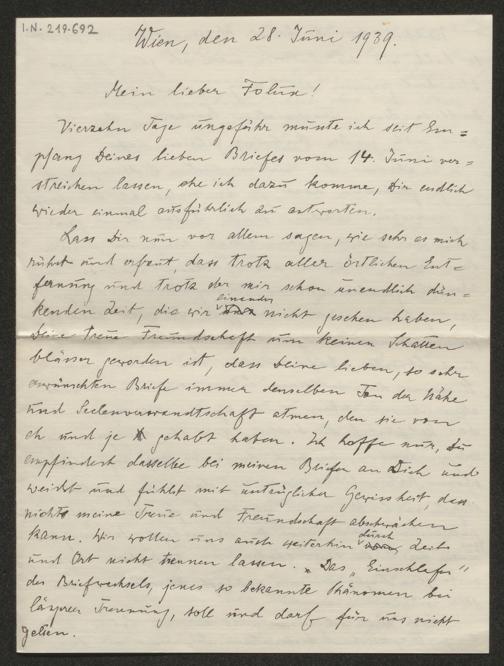 I.N. 219.692
Wien, den 28. Juni 1939.
Mein lieber !
Vierzehn Tage ungefähr musste ich seit Em=
pfang Deines lieben Briefes vom 14. Juni ver=
streichen lassen, ehe ich dazu komme, Dir endlich
wieder einmal ausführlich zu antworten.
Lass Dir nun vor allem sagen, wie sehr es mich
rührt und erfreut, dass trotz aller örtlichen Ent=
fernung und trotz der mir schon unendlich dün=
kenden Zeit, die wir einander nicht gesehen haben,
Deine treue Freundschaft um keinen Schatten
blässer geworden ist, dass Deine lieben, so sehr
erwünschten Briefe immer denselben Ton der Nähe
und Seelenverwandtschaft atmen, den sie von
eh und je gehabt haben. Ich hoffe nur, Du
empfindest dasselbe bei meinen Briefen an Dich und
weisst und fühlst mit untrüglicher Gewissheit, dass
nichts meine Treue und Freundschaft abschwächen
kann. Wir wollen uns auch weiterhin durch Zeit
und Ort nicht trennen lassen. „Das „Einschlafen"
des Briefwechsels, jenes so bekannte Phänomen bei
längerer Trennung, soll und darf für uns nicht
gelten.